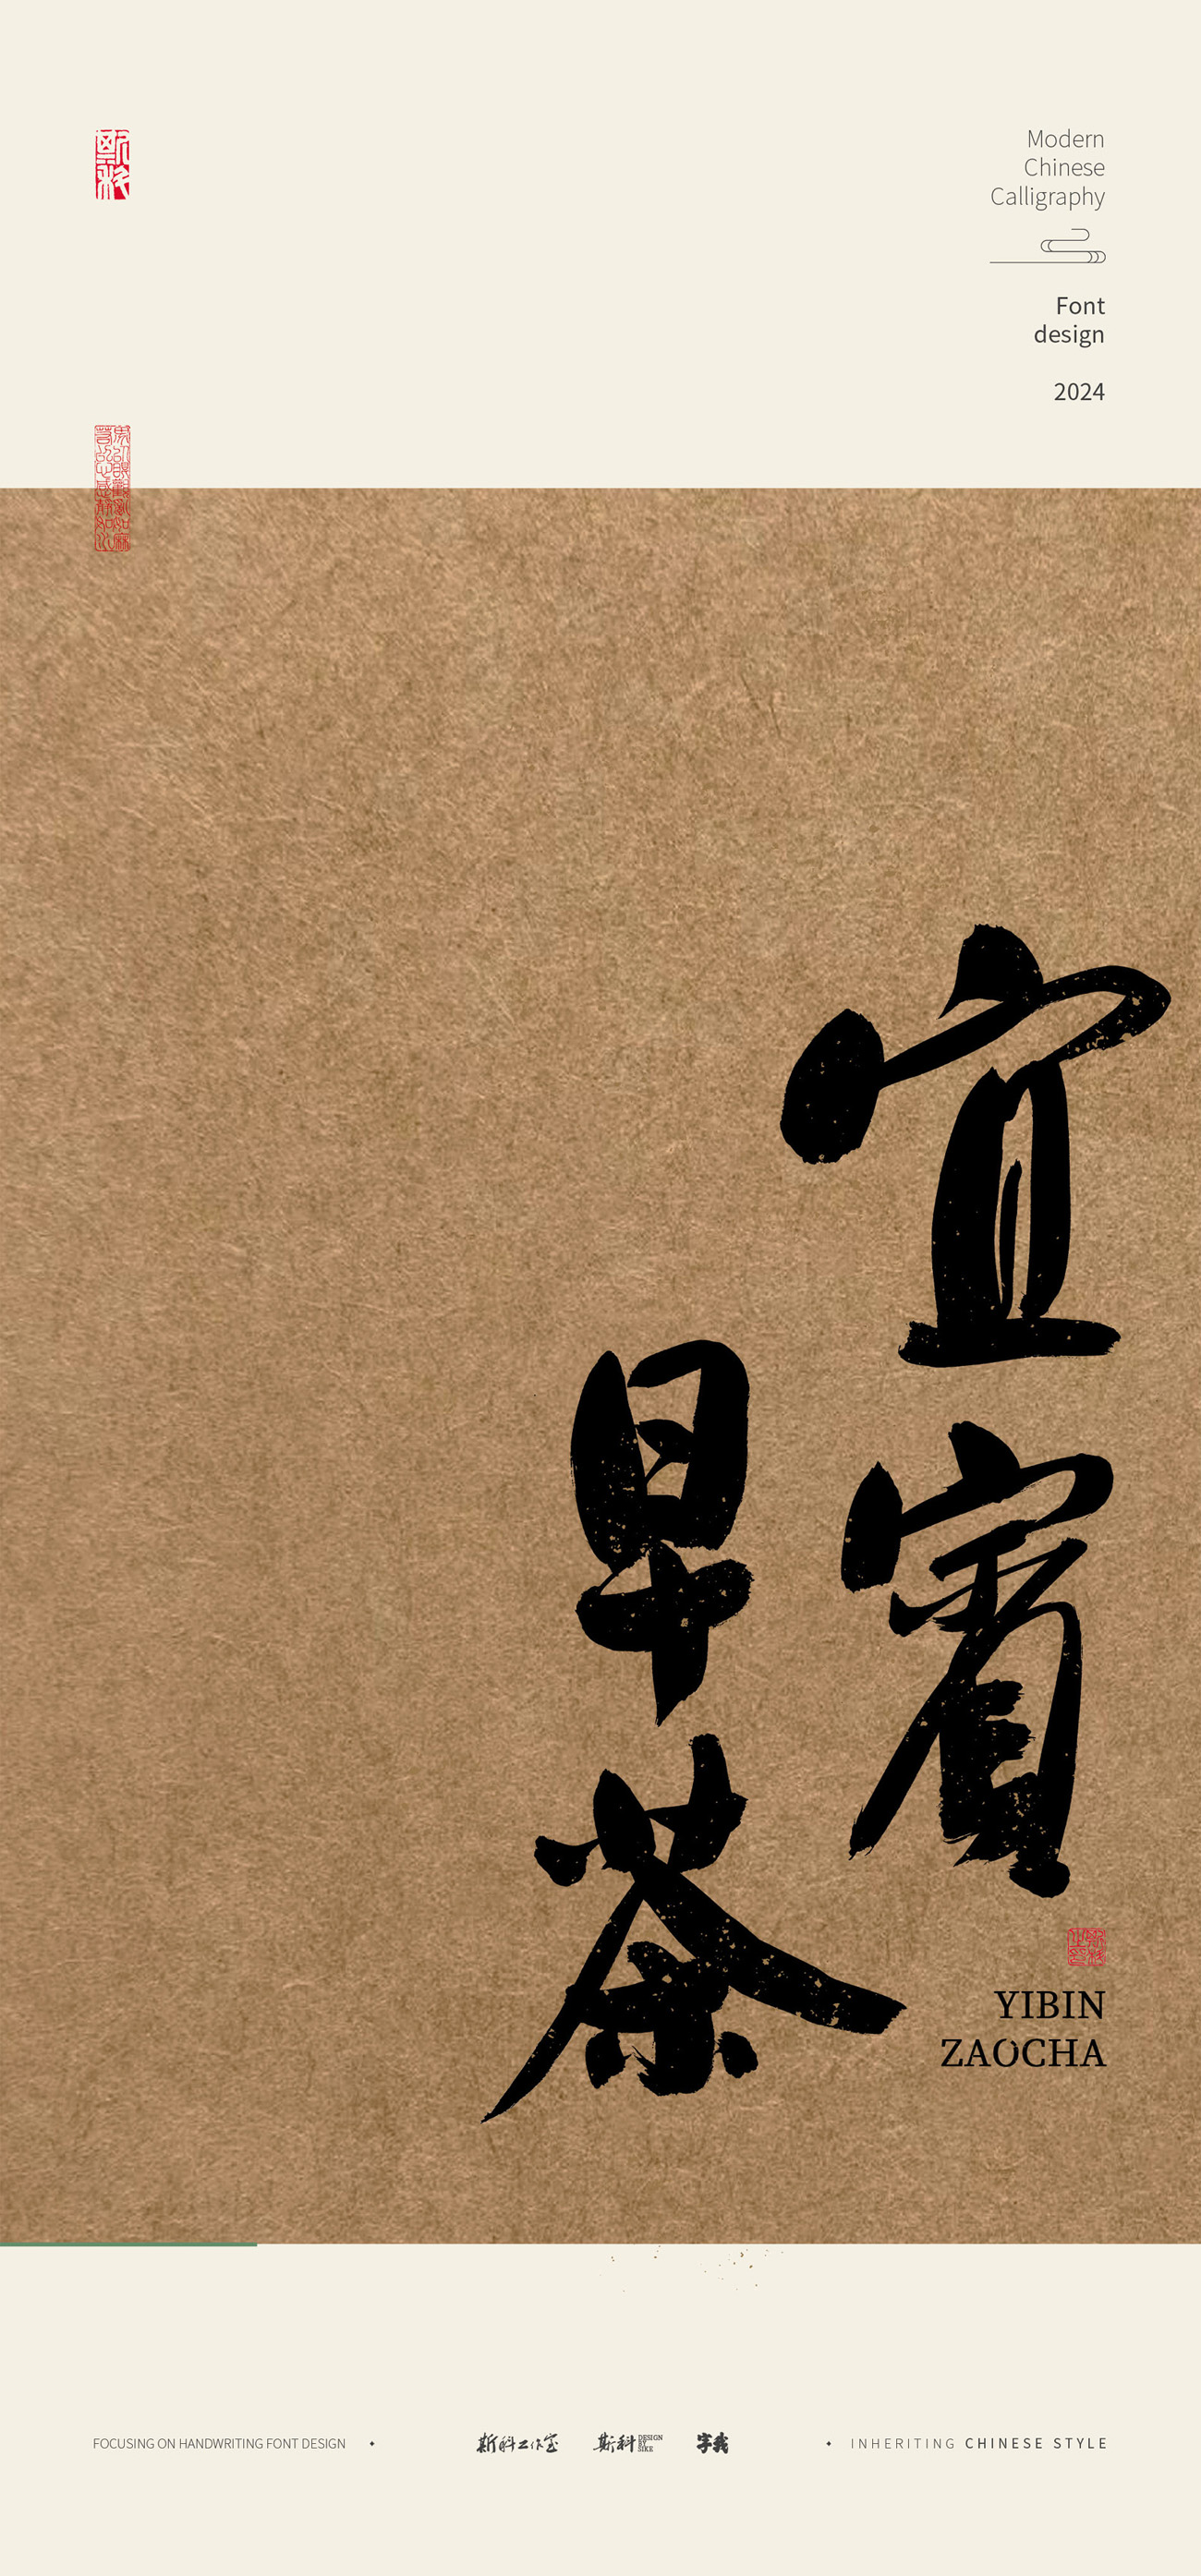 Modern
Chinese
Calligraphy
Font
design
2024
宜賓
早茶
YIBIN
ZAOCHA
FOCUSING ON HANDWRITING FONT DESIGN
斯科工作室
斯科
DESIGN
BY
SIKE
字我
INHERITING CHINESE STYLE